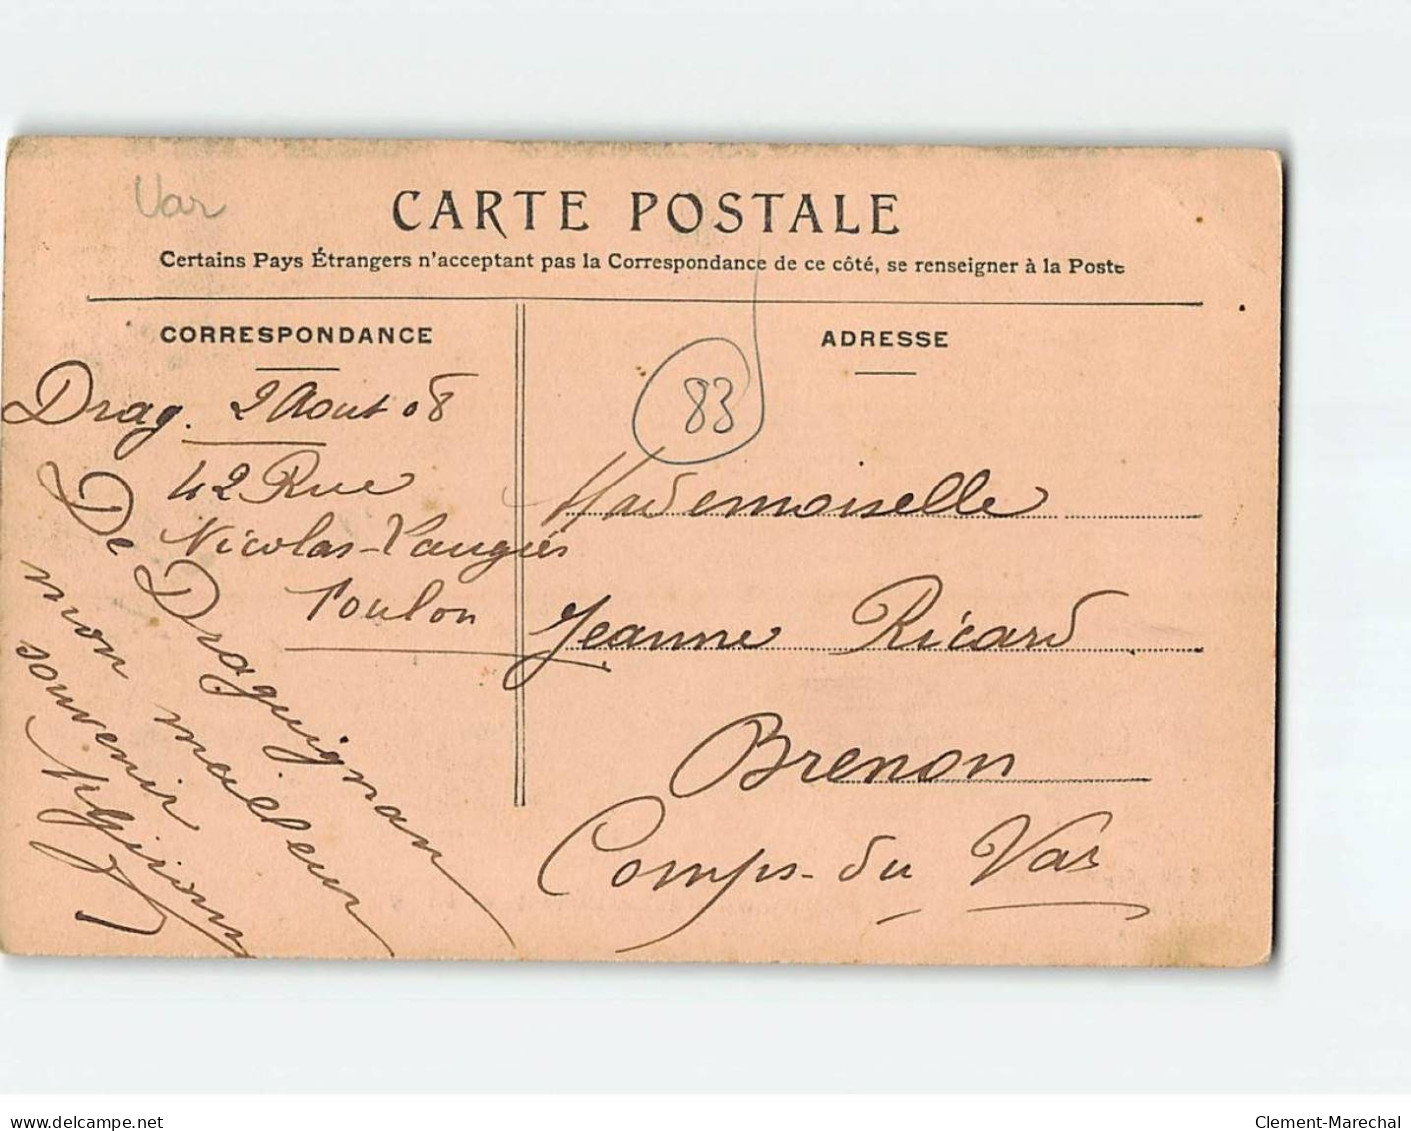 Var
CARTE POSTALE
Certains Pays Étrangers n'acceptant pas la Correspondance de ce côté, se renseigner à la Poste
CORRESPONDANCE
Drag. 2 Aout 08
42 Rue
Nicolas-Laugier
Toulon
De Draguignan
mon meilleur
souvenir
ADRESSE
83
Mademoiselle
Jeanne Ricard
Brenon
Comps-du Var
delcampe.net
Clement-Marechal